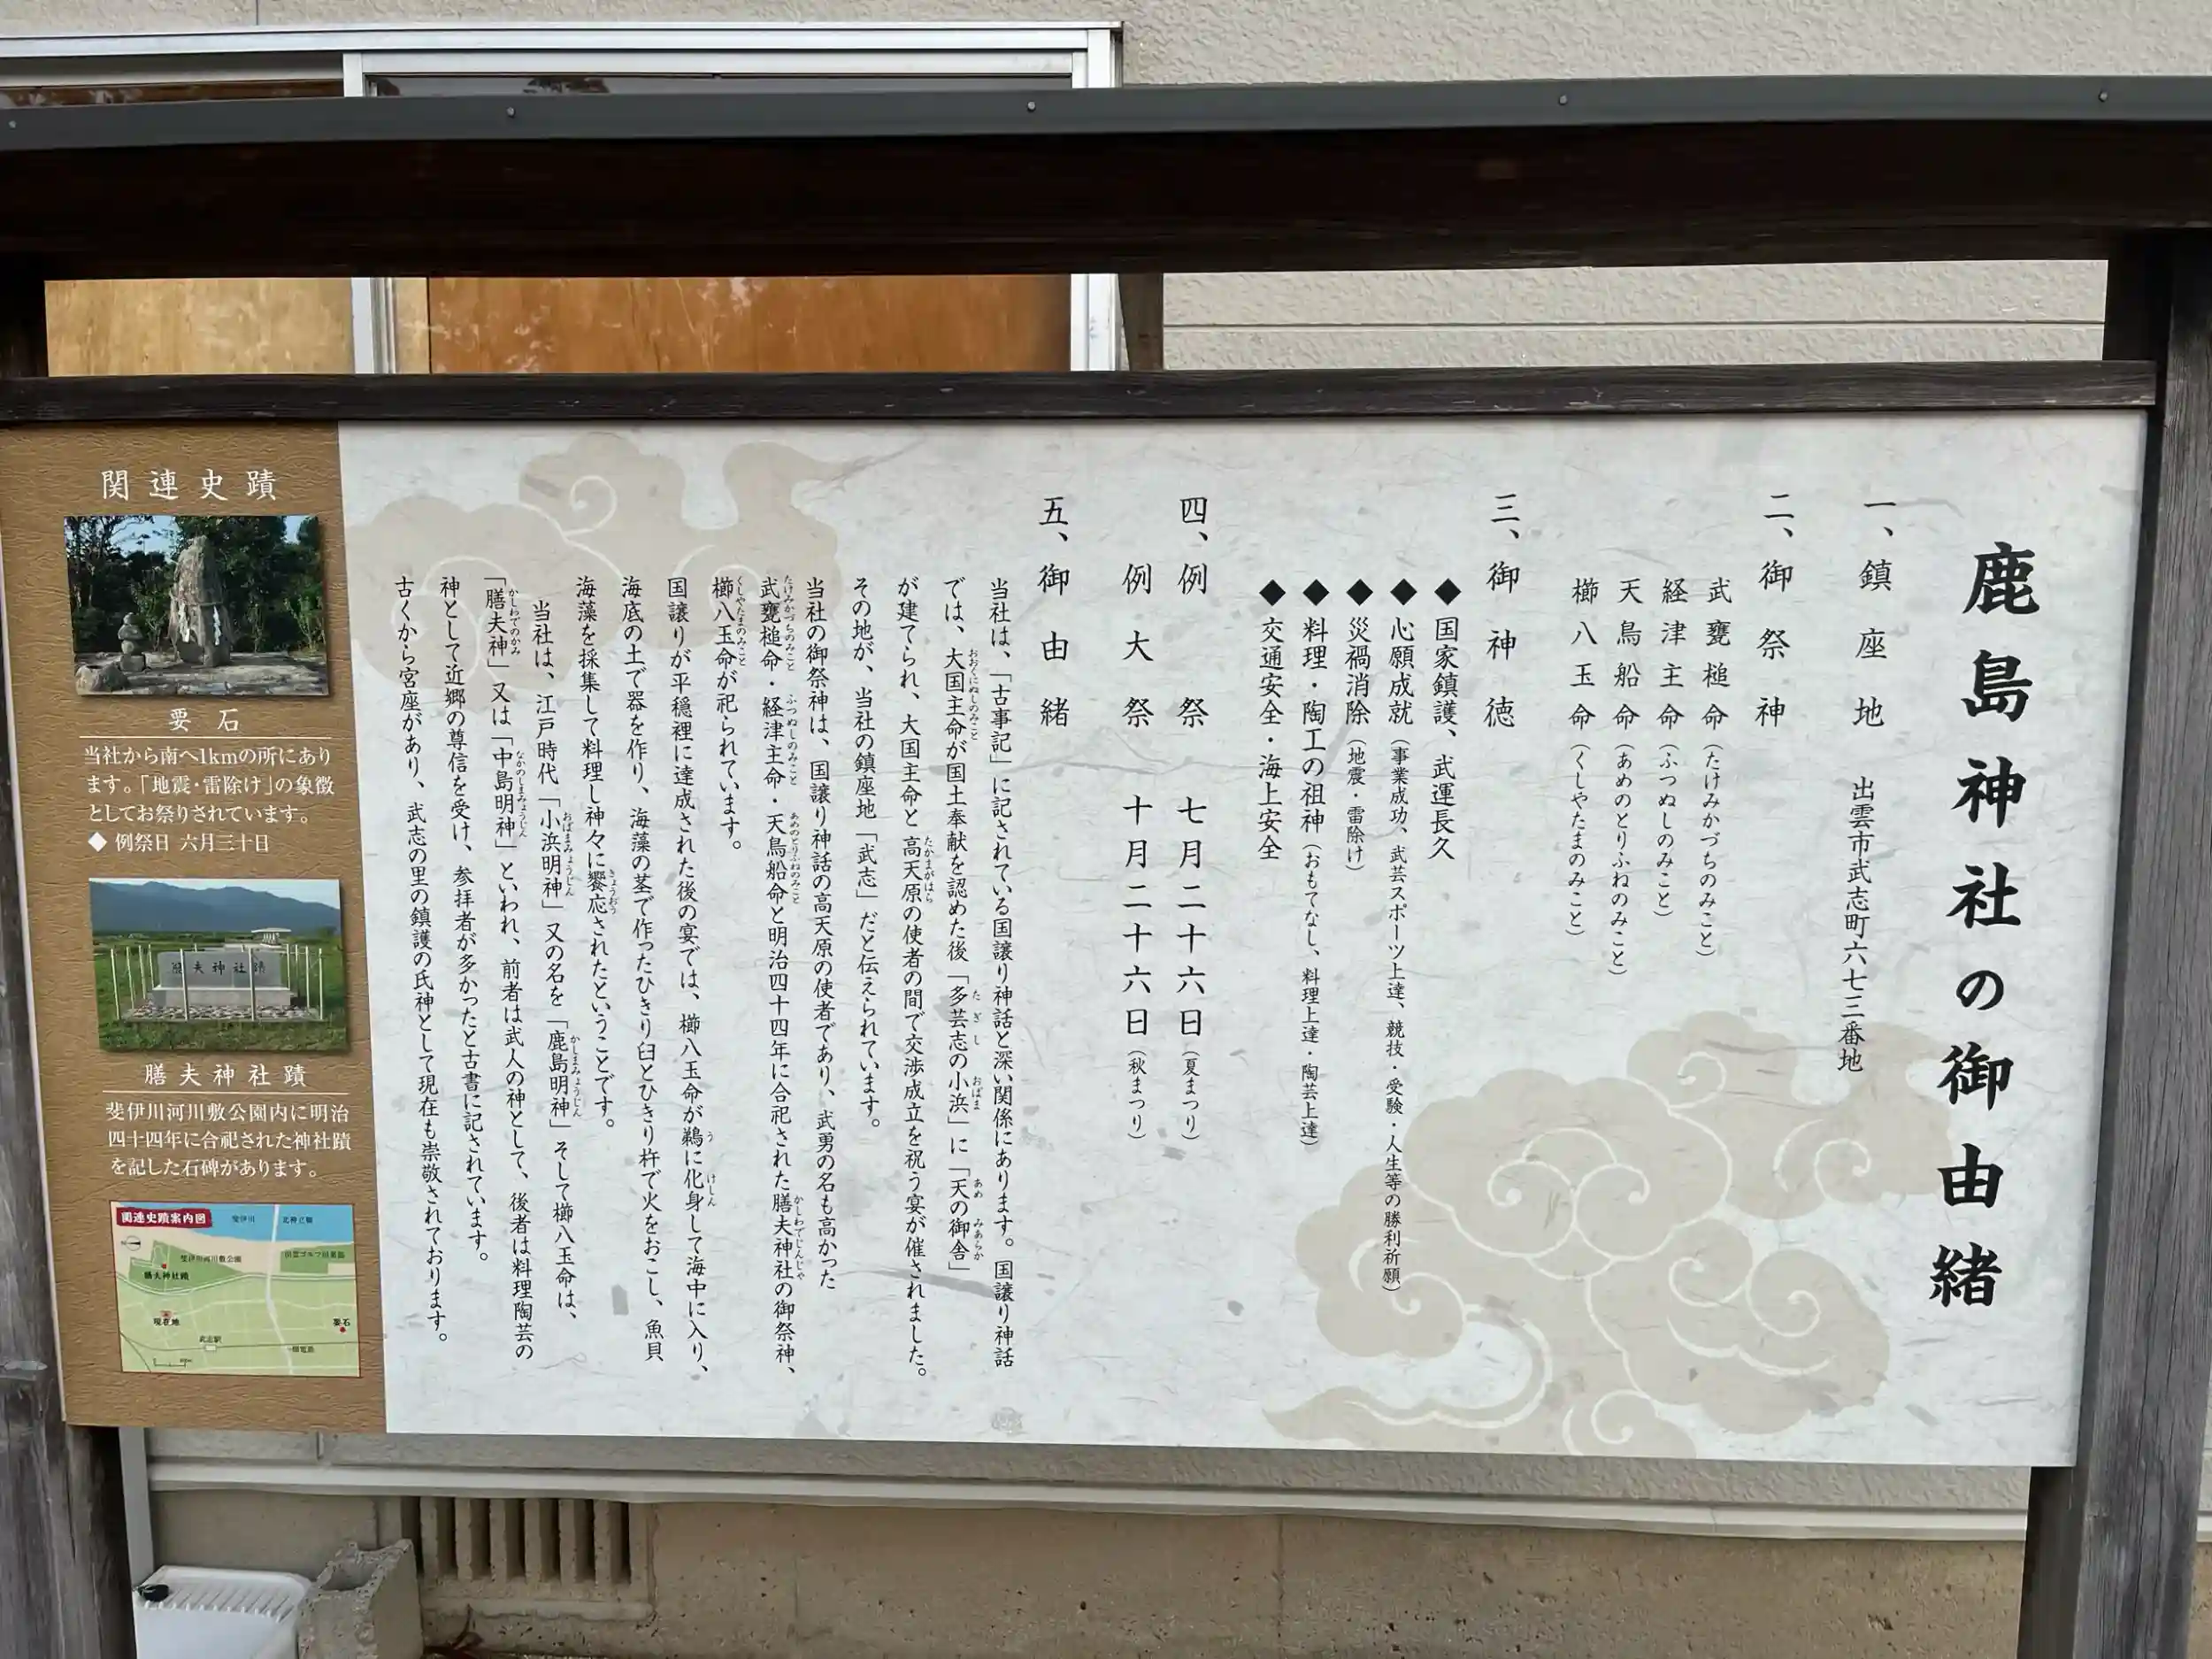 鹿島神社の御由緒
一、鎮座地 出雲市武志町六七三番地
二、御祭神
武甕槌命(たけみかづちのみこと)
経津主命(ふつぬしのみこと)
天鳥船命(あめのとりふねのみこと)
櫛八玉命(くしやたまのみこと)
三、御神徳
◆国家鎮護、武運長久
◆心願成就(事業成功、武芸スポーツ上達、競技・受験・人生等の勝利祈願)
◆災禍消除(地震・雷除け)
◆料理・陶工の祖神(おもてなし、料理上達・陶芸上達)
◆交通安全・海上安全
四、例祭 七月二十六日(夏まつり)
例大祭 十月二十六日(秋まつり)
五、御由緒
当社は、「古事記」に記されている国譲り神話と深い関係にあります。国譲り神話
では、大国主命が国土奉献を認めた後「多芸志の小浜」に「天の御舎」
が建てられ、大国主命と高天原の使者の間で交渉成立を祝う宴が催されました。
その地が、当社の鎮座地「武志」だと伝えられています。
当社の御祭神は、国譲り神話の高天原の使者であり、武勇の名も高かった
武甕槌命・経津主命・天鳥船命と明治四十四年に合祀された膳夫神社の御祭神、
櫛八玉命が祀られています。
国譲りが平穏裡に達成された後の宴では、櫛八玉命が鵜に化身して海中に入り、
海底の土で器を作り、海藻の茎で作ったひきり臼とひきり杵で火をおこし、魚貝
海藻を採集して料理し神々に饗応されたということです。
当社は、江戸時代「小浜明神」又の名を「鹿島明神」そして櫛八玉命は、
「膳夫神」又は「中島明神」といわれ、前者は武人の神として、後者は料理陶芸の
神として近郷の尊信を受け、参拝者が多かったと古書に記されています。
古くから宮座があり、武志の里の鎮護の氏神として現在も崇敬されております。
関連史蹟
要石
当社から南へ1kmの所にあり
ます。「地震・雷除け」の象徴
としてお祭りされています。
◆ 例祭日 六月三十日
膳夫神社蹟
膳夫神社蹟
斐伊川河川敷公園内に明治
四十四年に合祀された神社蹟
を記した石碑があります。
関連史蹟案内図
斐伊川
斐伊川河川敷公園
膳夫神社蹟
現在地
要石
武志駅
一畑電鉄